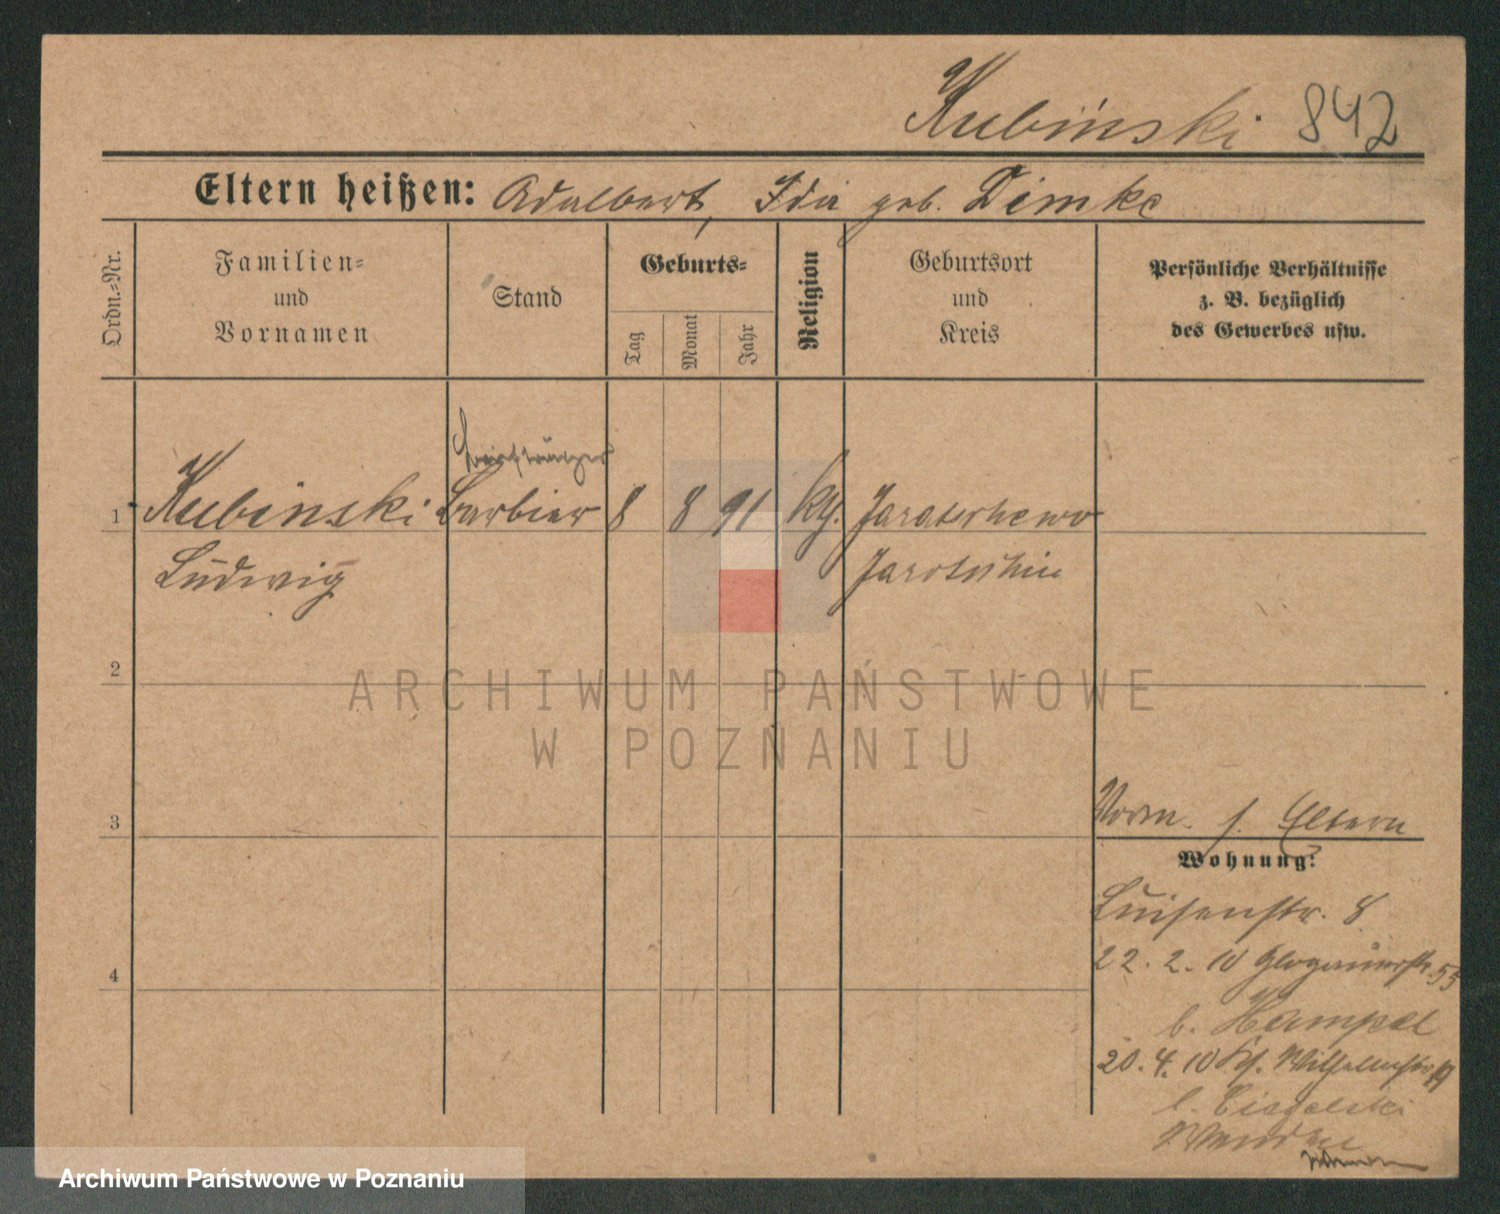 Kubinski 842
Eltern heißen: Adalbert, Ida geb. Dimke
Ordn.-Nr.
Familien-
und
Vornamen
Stand
Geburts-
Tag
Monat
Jahr
Religion
Geburtsort
und
Kreis
Persönliche Verhältnisse
z. B. bezüglich
des Gewerbes usw.
1 Kubinski Barbier 8 8 91 kth. Jaratschewo
Ludwig Jarotschin
2
3
4
Vorm. s. Eltern
Wohnung:
Luisenstr. 8
22. 2. 10 Glogauerstr. 55
b. Hampel
20. 4. 10 Wilhelmstr.
b.
ARCHIWUM PAŃSTWOWE
W POZNANIU
Archiwum Państwowe w Poznaniu